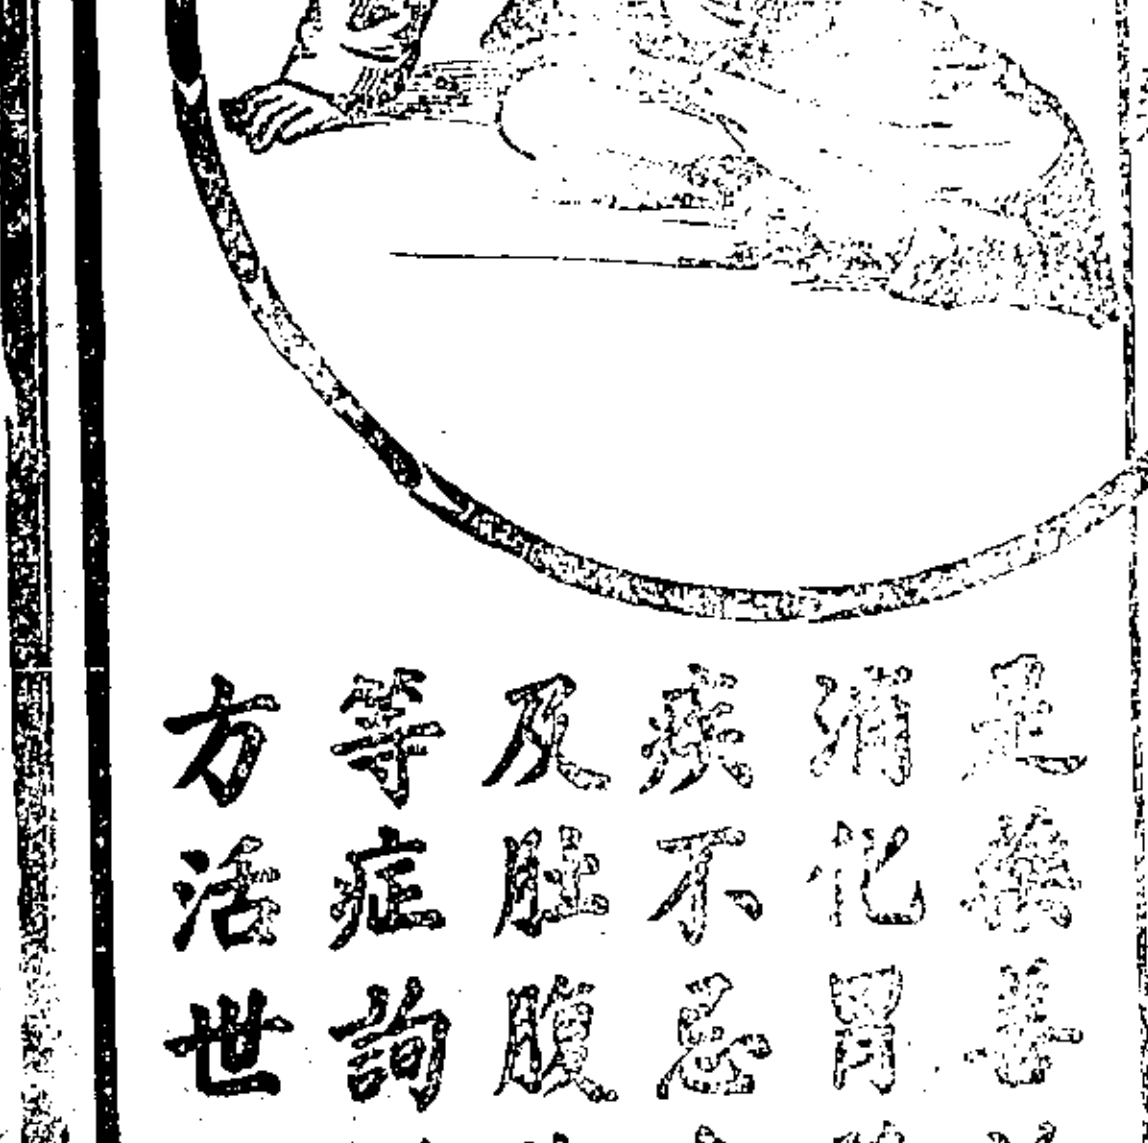 是藥善
消化胃
疾不忌
及肚腹
等症詢
方活世